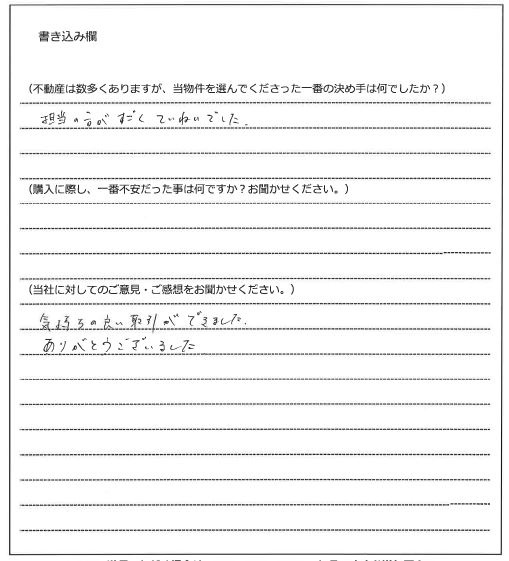 書き込み欄
（不動産は数多くありますが、当物件を選んでくださった一番の決め手は何でしたか？）
担当の方がすごくていねいでした.
（購入に際し、一番不安だった事は何ですか？お聞かせください。）
（当社に対してのご意見・ご感想をお聞かせください。）
気持ちの良い取引ができました.
ありがとうございました